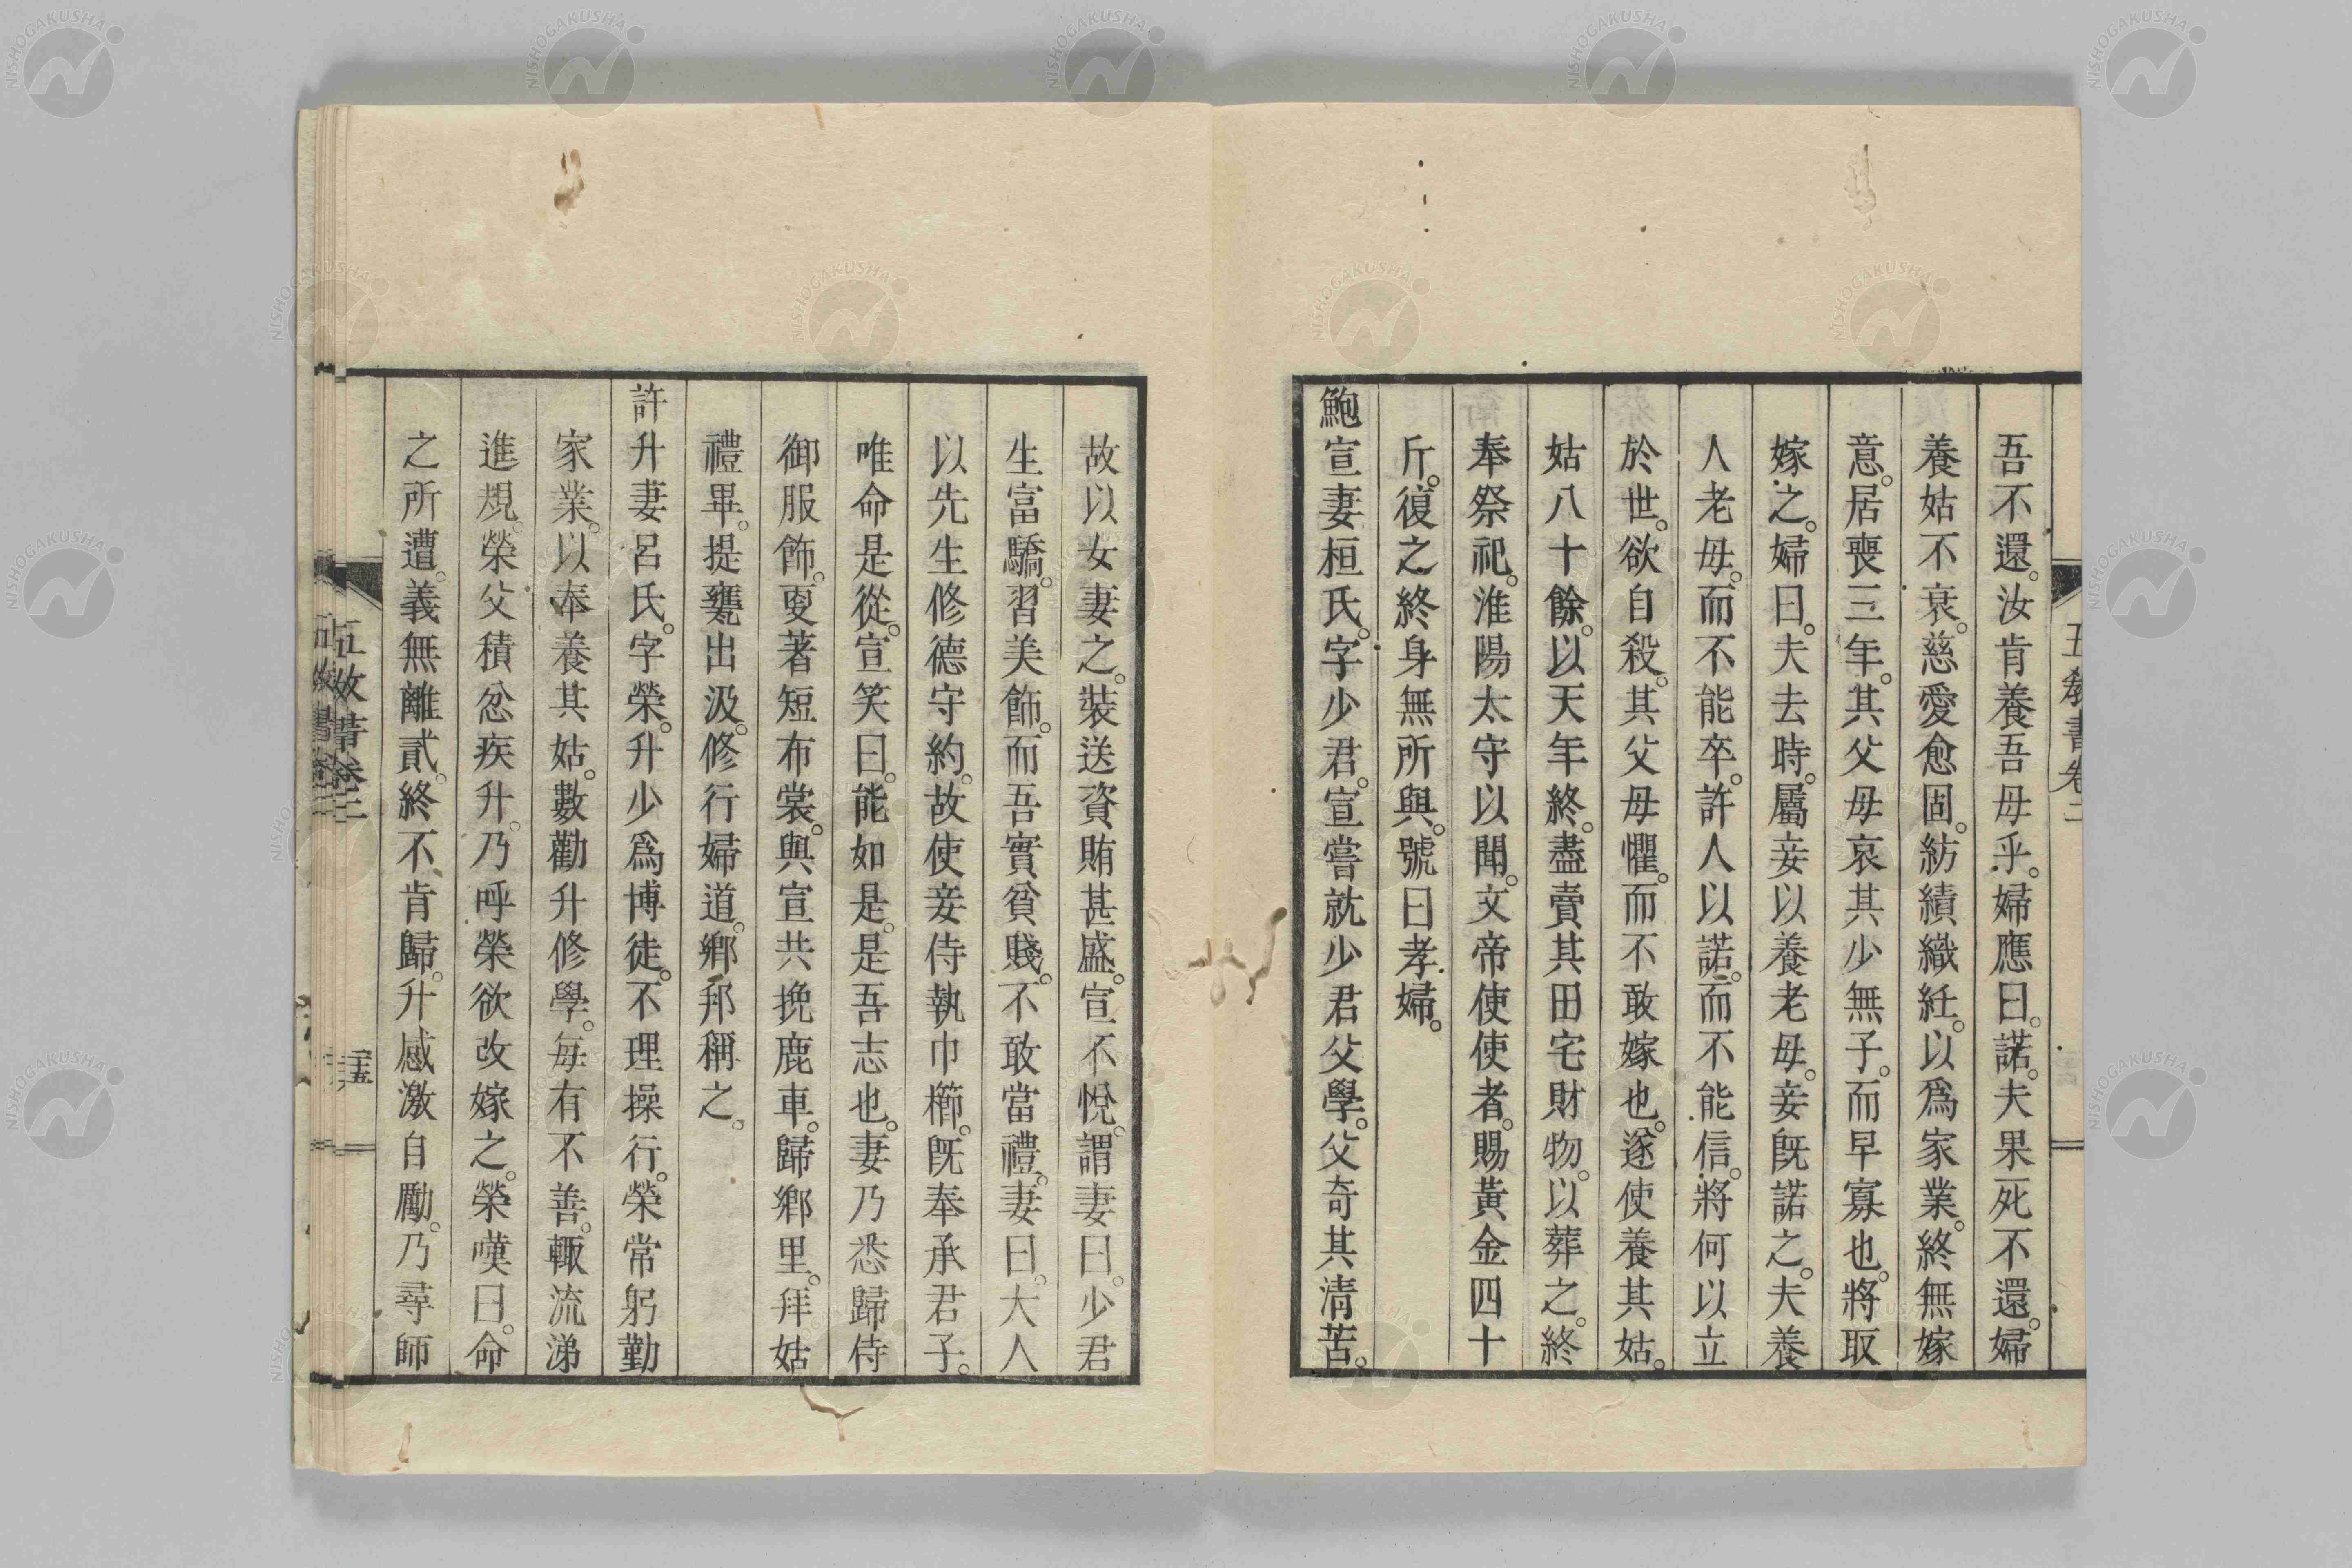 五教書卷二
吾不還。汝肯養吾母乎。婦應曰。諾。夫果死不還。婦
養姑不衰。慈愛愈固。紡績織紝。以爲家業。終無嫁
意。居喪三年。其父母哀其少無子。而早寡也。將取
嫁之。婦曰。夫去時。屬妾以養老母。妾既諾之。夫養
人老母。而不能卒。許人以諾。而不能信。將何以立
於世。欲自殺。其父母懼。而不敢嫁也。遂使養其姑。
姑八十餘。以天年終。盡賣其田宅財物。以葬之。終
奉祭祀。淮陽太守以聞。文帝使使者。賜黃金四十
斤。復之終身無所與。號曰孝婦。
鮑宣妻桓氏。字少君。宣嘗就少君父學。父奇其清苦。
故以女妻之。裝送資賄甚盛。宣不悅。謂妻曰。少君
生富驕。習美飾。而吾實貧賤。不敢當禮。妻曰。大人
以先生修德守約。故使妾侍執巾櫛。既奉承君子。
唯命是從。宣笑曰。能如是。是吾志也。妻乃悉歸侍
御服飾。更著短布裳。與宣共挽鹿車。歸鄉里。拜姑
禮畢。提甕出汲。修行婦道。鄉邦稱之。
許升妻呂氏。字榮。升少爲博徒。不理操行。榮常躬勤
家業。以奉養其姑。數勸升修學。每有不善。輙流涕
進規。榮父積忿疾升。乃呼榮欲改嫁之。榮嘆曰。命
之所遭。義無離貳。終不肯歸。升感激自勵。乃尋師
五敎書卷二
二十五
NISHOGAKUSHA